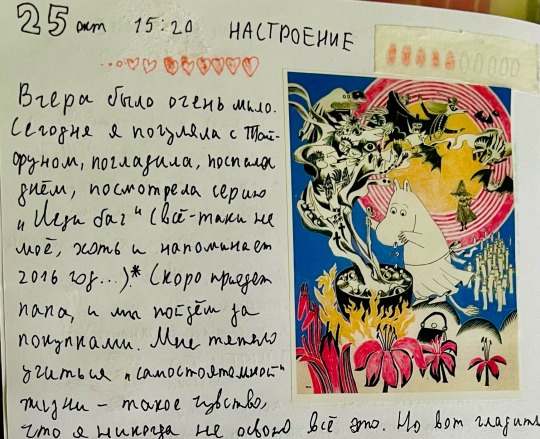 25 окт 15:20 НАСТРОЕНИЕ
Вчера было очень мило.
Сегодня я погуляла с Тай-
фуном, погладила, поспала
днём, посмотрела серию
"Изи баг" (всё-таки не
моё, хоть и напоминает
2016 год...)* (Скоро приедет
папа, и мы пойдём за
покупками. Мне тяжело
учиться "самостоятельности"
жизни – такое чувство,
что я никогда не освою всё это. Но вот гладить